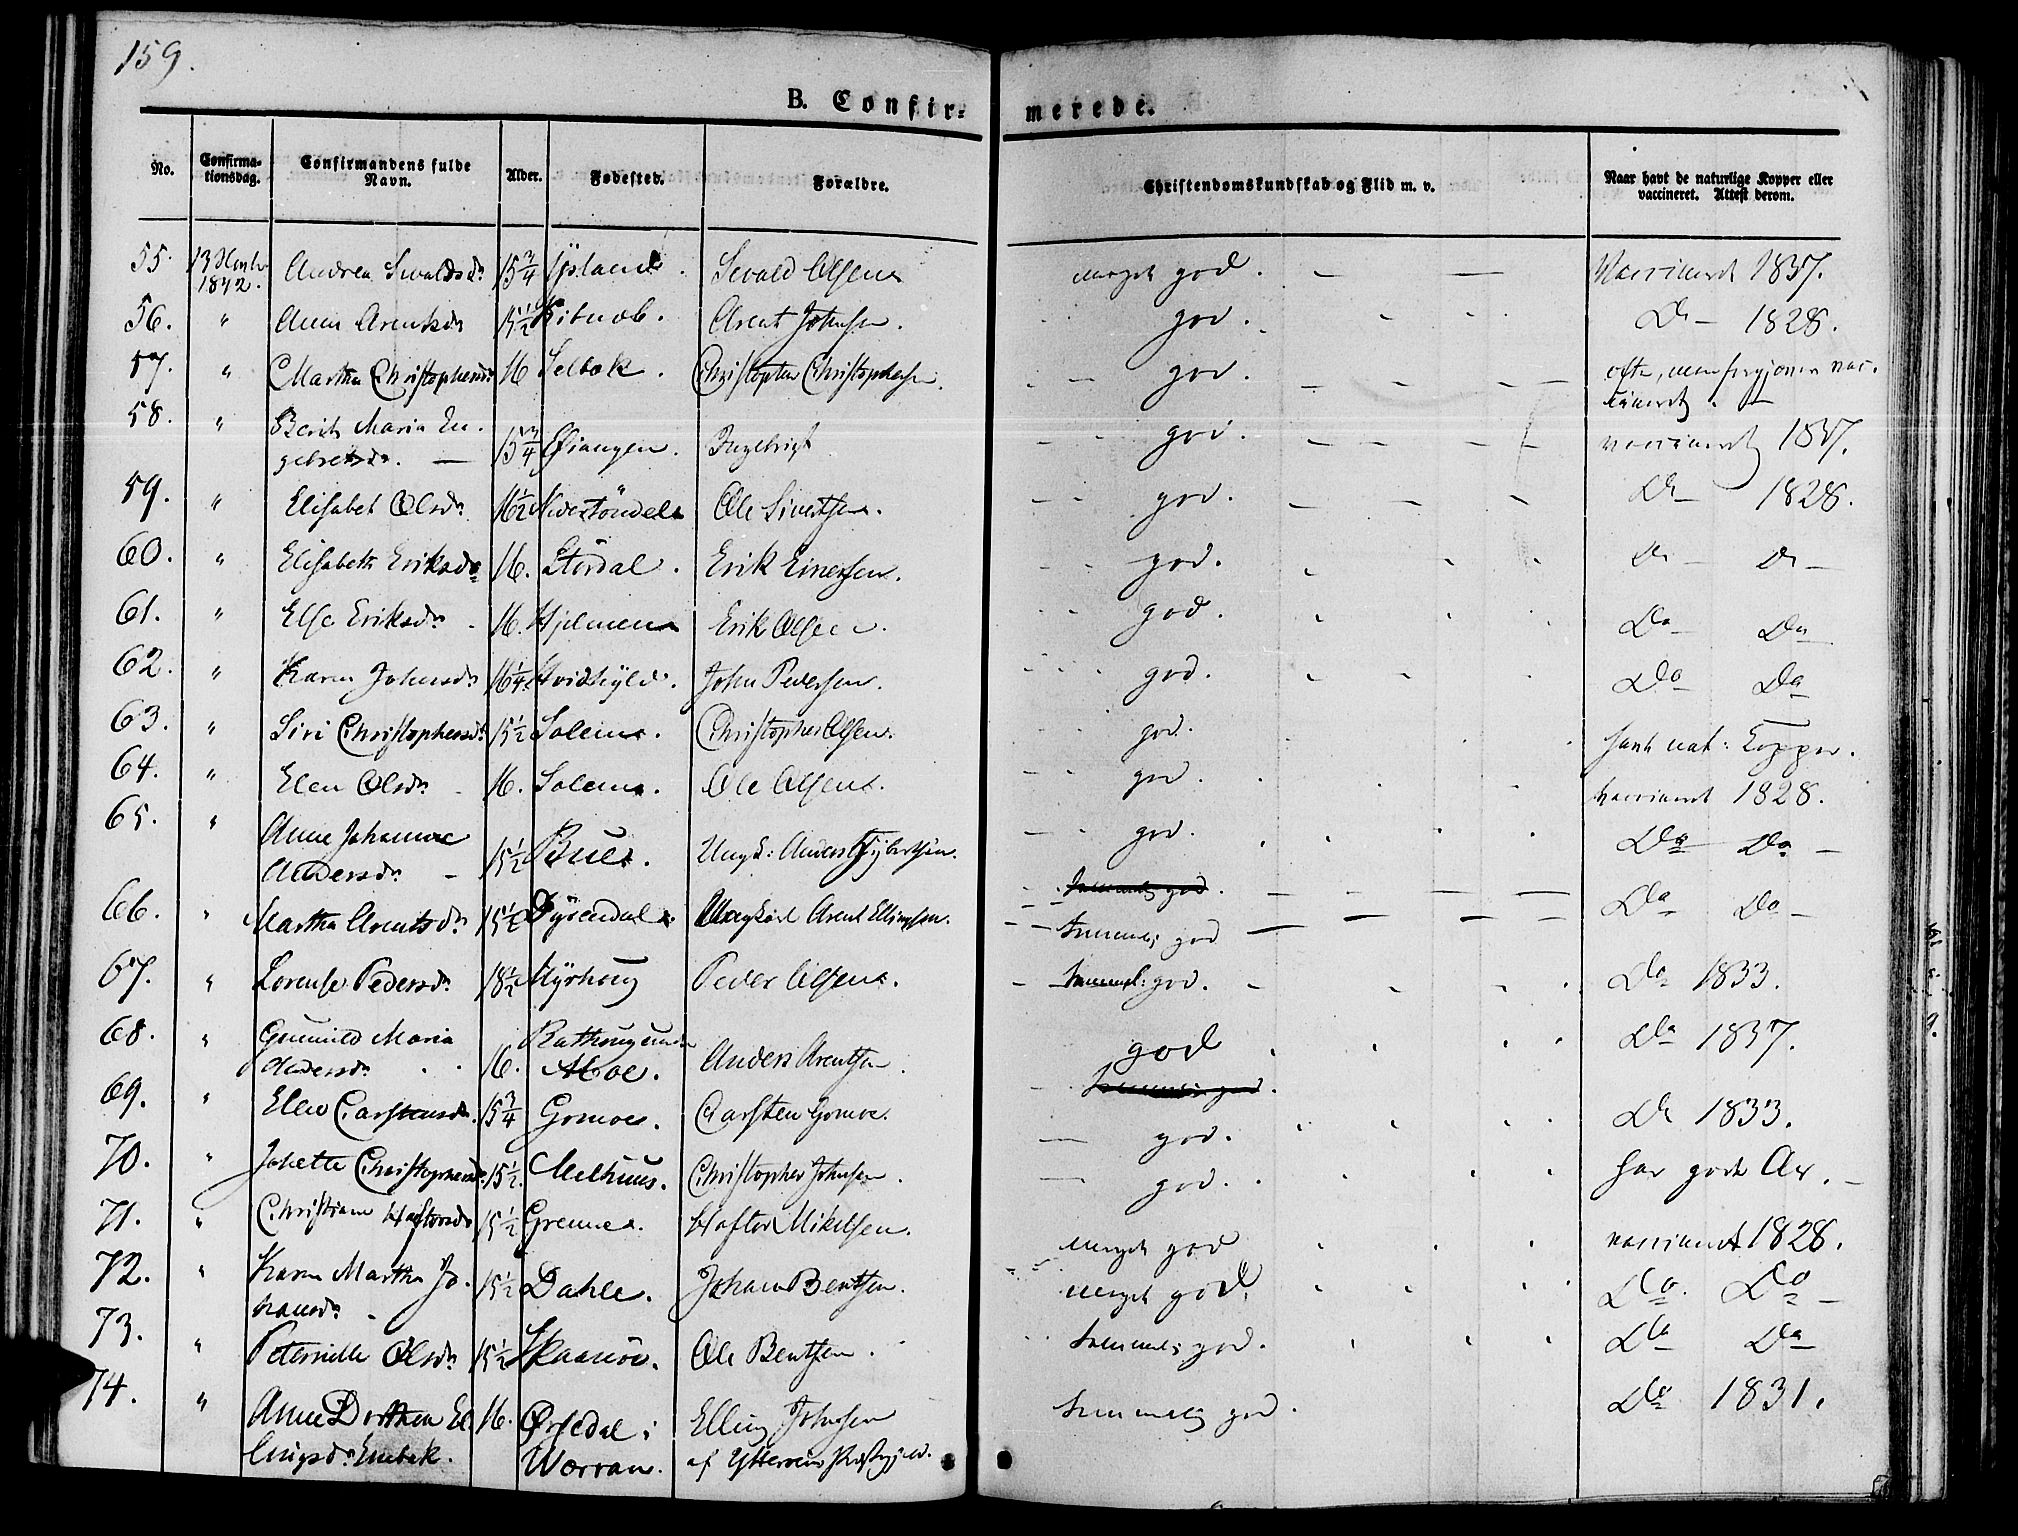 159.
B. Confir-merede.
No. Confirma-tionsdag. Confirmandens fulde Navn. Alder. Fødested. Forældre. Christendomskundskab og Flid m. v. Naar havt de naturlige Kopper eller vaccineret. Attest derom.
55. 13 1842. Andrea Sivaldsdr 15 3/4 Sevald Olsen meget god. vaccineret 1837.
56. " Anne Arentsdr 15 1/2 Arent Johnsen. god. Do 1828.
57. " Martha Christophersdr 16 Selbok. Christopher Christophersen. god. ofte, men forgjæves vac-
cineret.
58. " Berit Maria En-
gebretsdr. 15 3/4 Ingebrigt god. vaccineret 1837.
59. " Elisabet Olsdr 16 1/2 Ole Sivertsen. god. Do 1828.
60. " Elisabeth Eriksdr 16. Stordal. Erik Einersen. god. Do Do
61. " Else Eriksdr 16. Hjelmen Erik Olsen. god. Do Do
62. " Karen Johnsdr 16 1/4 John Pedersen. god. Do Do
63. " Siri Christophersdr 15 1/2 Salem. Christopher Olsen. god. havt nat: Kopper.
64. " Elen Olsdr 16. Salem. Ole Olsen. god. vaccineret 1828.
65. " Anne Johanne
Andersdr. 15 1/2 Bue. Ungk: Anders god. Do Do
66. " Martha Arentsdr 15 1/2 Dyrendal. Ungkarl Arent Ellingsen. temmelig god
temmelig god Do Do
67. " Lorense Pedersdr. 18 1/2 Myrhoug Peder Olsen. temmel: god. Do 1833.
68. " Gunnild Maria
Andersdr. 16. Moe. Anders Arentsen. god
temmelig god. Do 1837.
69. " Elen Carstensdr. 15 3/4 Gomoe. Carsten Gomoe. god. Do 1833.
70. " Johette Christophersdr. 15 1/2. Melhuus. Christopher Johnsen. god. har gode Ar.
71. " Christiane Haftorsdr 15 1/2 Grennes. Haftor Mikelsen. meget god vaccineret 1828.
72. " Karen Martha Jo-
hansdr. 15 1/2 Dahle. Johan Bentsen. meget god. Do. Do
73. " Peternille Olsdr. 15 1/2 Skaanøe. Ole Bentsen. temmelig god. Do Do
74. " Anne Dorthea El-
lingsdr. 16. Ørsedal i
Værran. Elling Johnsen
af Ytterøens Præstegjeld. temmelig god. Do 1831.